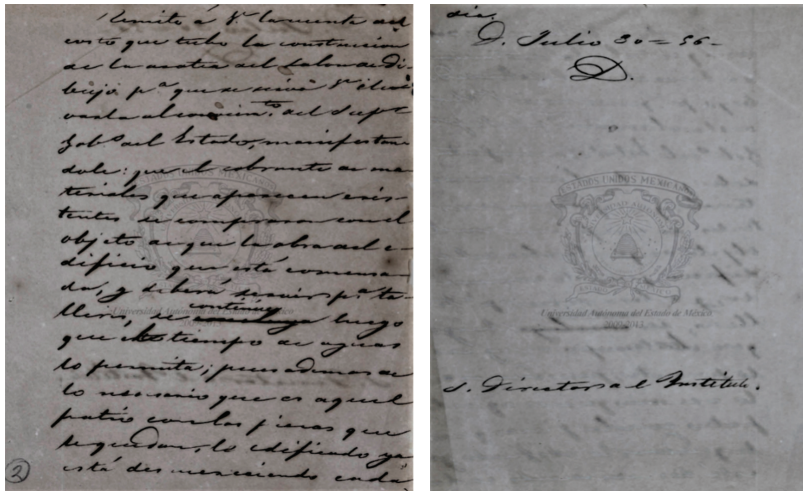 Remito á V. la cuenta del
costo que tubo la construccion
de la azotea del Salon de Di-
bujo pª que se sirva V. ele-
varla al conocimto. del Supr.
Gobno del Estado, manifestan-
dole: que el sobrante de ma-
teriales que aparecen exis-
tentes se compraron con el
objeto de que la obra del e-
dificio que está comenza-
do, y deberá servir pª ta-
lleres, se continúe luego
que el tiempo de aguas
lo permita; pues ademas de
lo necesario que es aquel
patio con las piezas que
le quedan, lo edificado ya
está desmereciendo cada
2
dia.
D. Julio 30 = 56 -
D.
S. Director del Instituto.
ESTADOS UNIDOS MEXICANOS
Universidad Autónoma del Estado de México